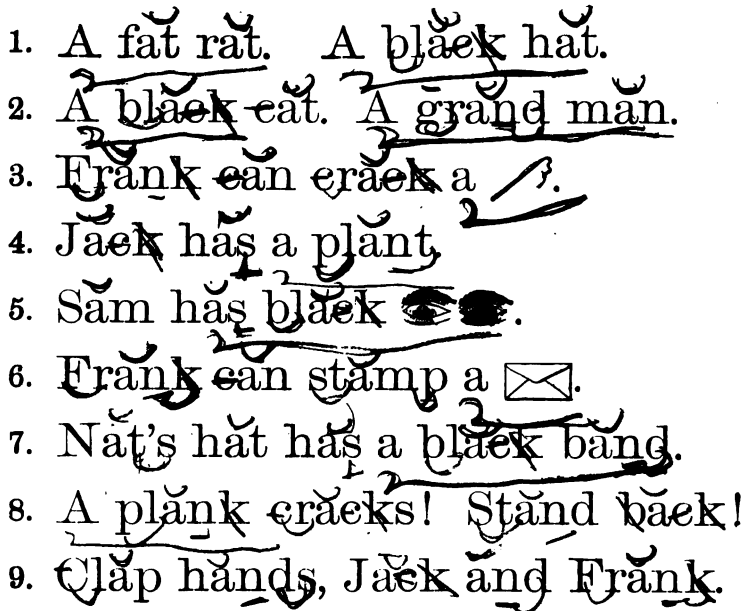 1. A făt răt. A blăck hăt.
2. A blăck căt. A grănd măn.
3. Frănk căn crăck a .
4. Jăck hăs a plănt.
5. Săm hăs blăck .
6. Frănk căn stămp a .
7. Năt's hăt hăs a blăck bănd.
8. A plănk crăcks! Stănd băck!
9. Clăp hănds, Jăck ănd Frănk.